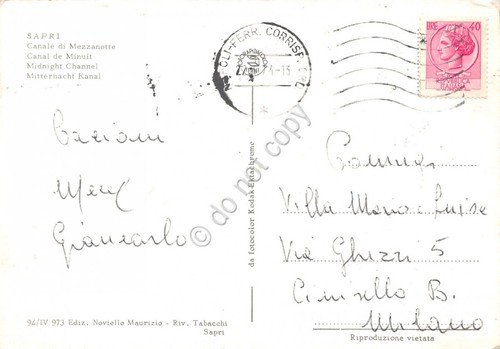 SAPRI
Canale di Mezzanotte
Canal de Minuit
Midnight Channel
Mitternacht Kanal
Giancarlo
94/IV 973 Ediz. Noviello Maurizio - Riv. Tabacchi
Sapri
da fotocolor Kodak Ektachrome
LI-FERR. CORRISP
4-15
LIRE 40
ITALIANA
do not copy
Villa Maria Luisa
Via Ghizzi 5
Cinisello B.
Milano
Riproduzione vietata